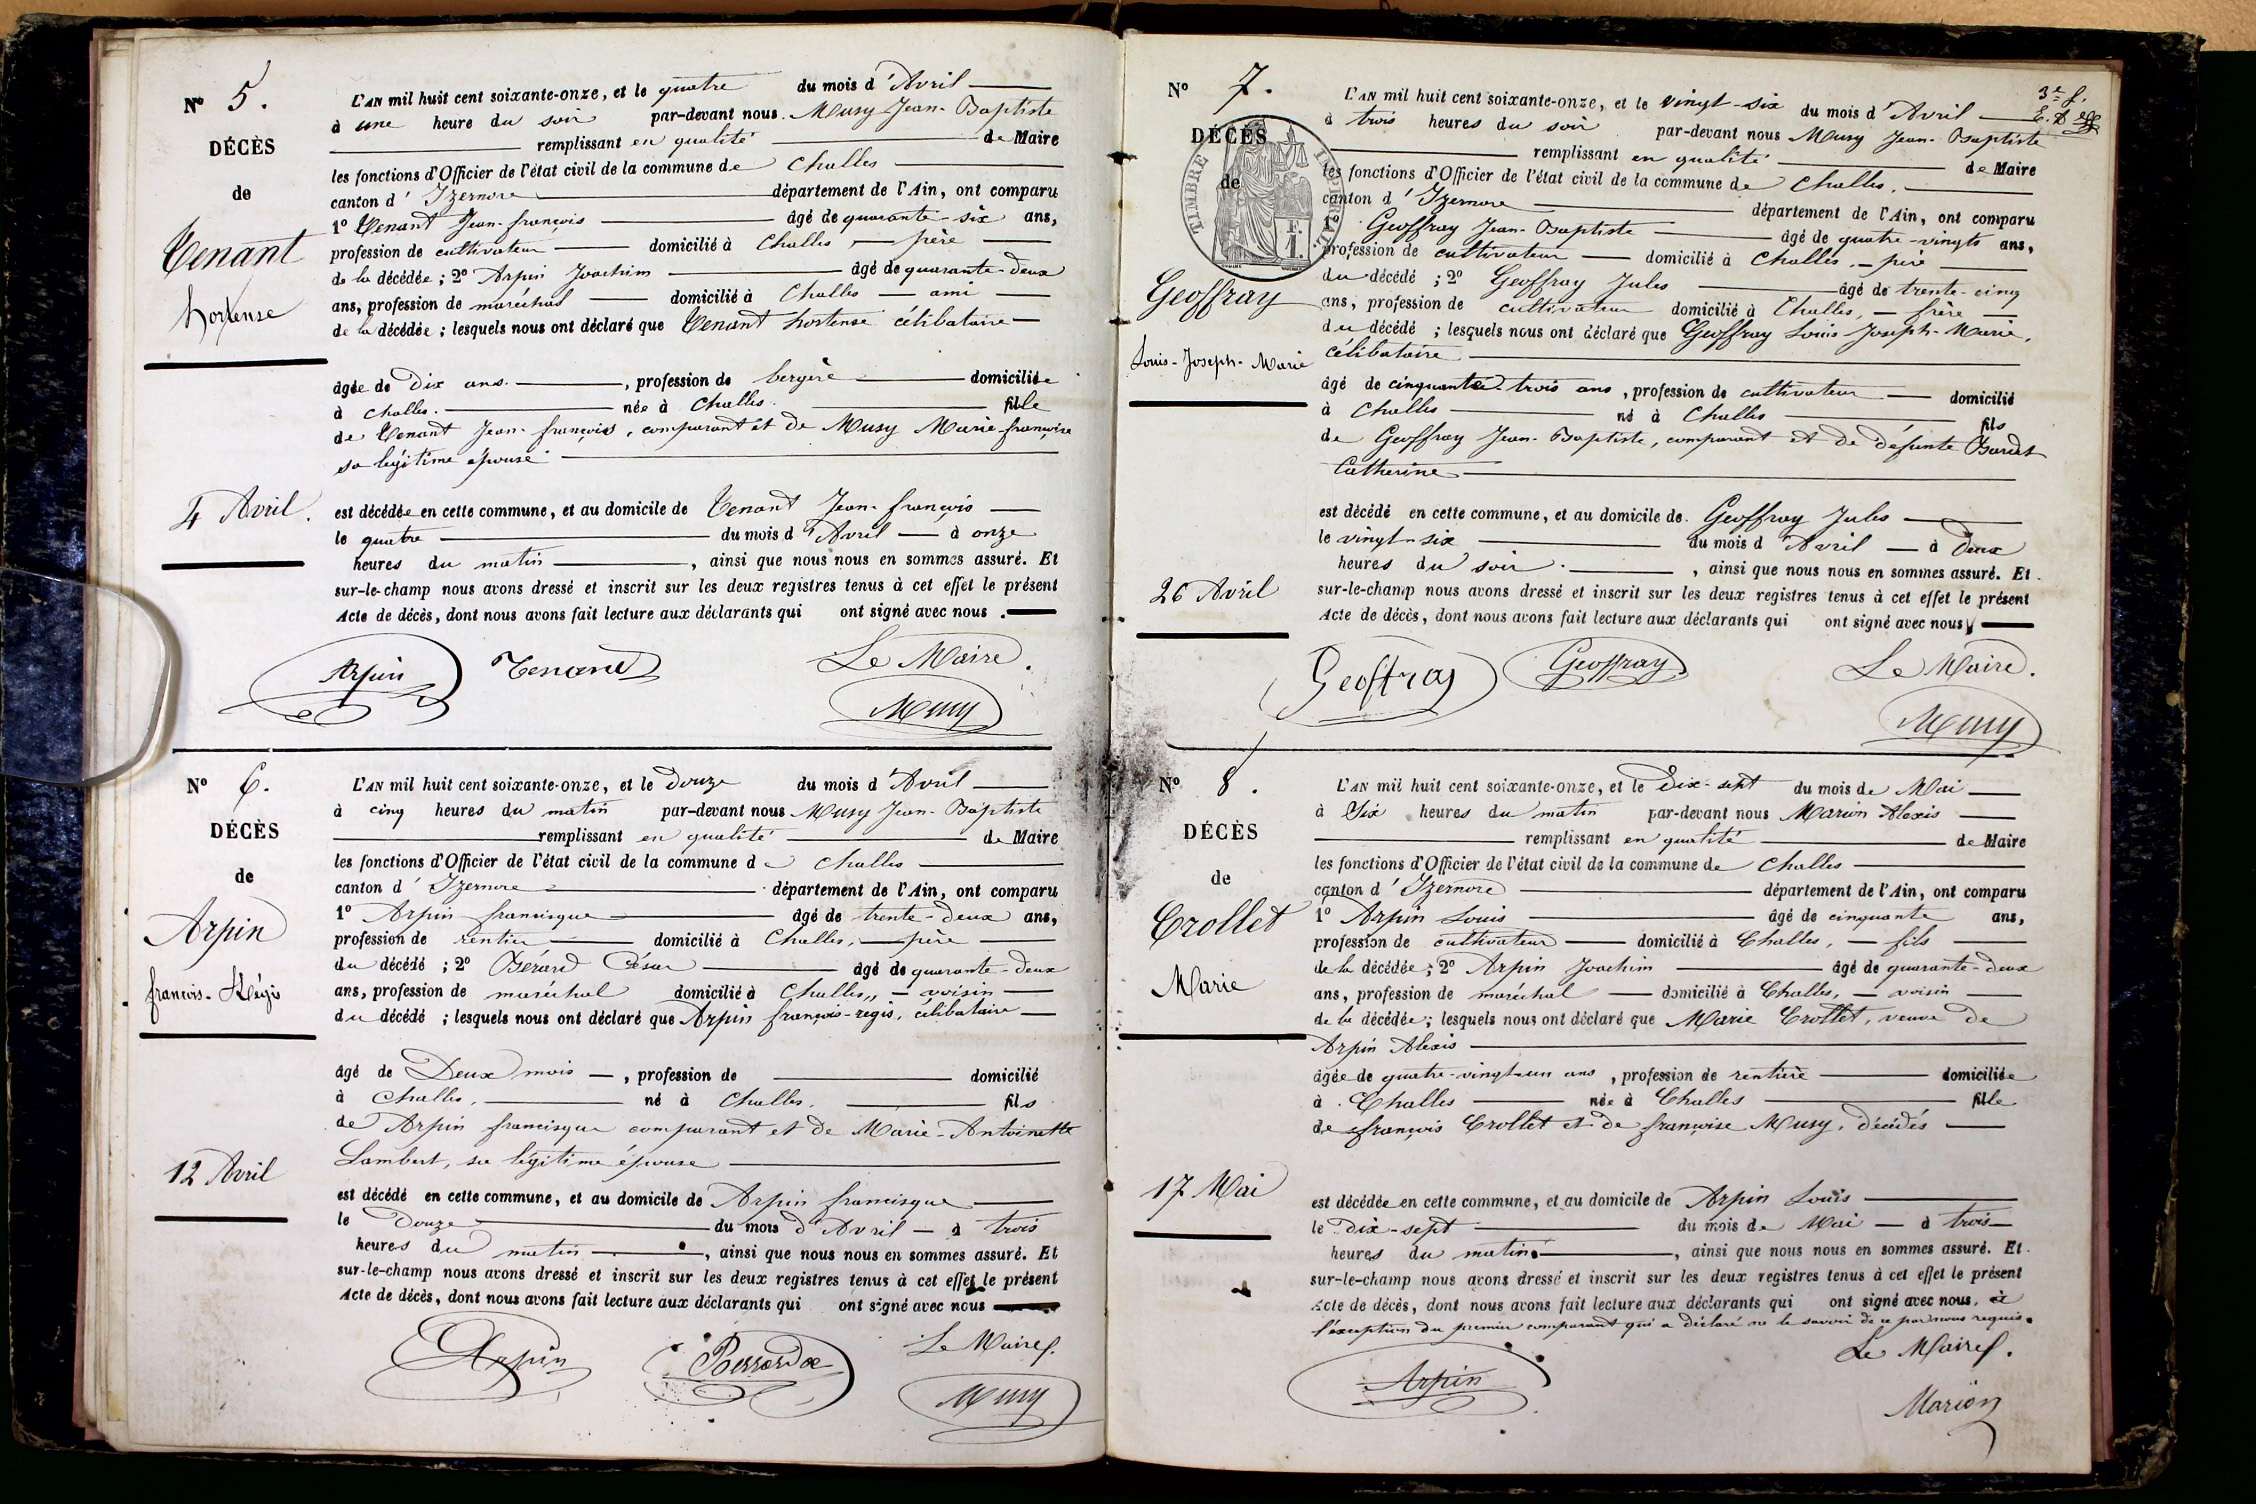 N° 5.
DÉCÈS
de
Tenant
hortense
4 Avril.
L'AN mil huit cent soixante-onze, et le quatre du mois d'Avril
à une heure du soir par-devant nous Musy Jean-Baptiste
remplissant en qualité de Maire
les fonctions d'Officier de l'état civil de la commune de Challes
canton d'Izernore département de l'Ain, ont comparu
1° Tenant Jean-françois âgé de quarante-six ans,
profession de cultivateur domicilié à Challes, père
de la décédée; 2° Arpin Joachim âgé de quarante-deux
ans, profession de maréchal domicilié à Challes ami
de la décédée; lesquels nous ont déclaré que Tenant hortense célibataire
âgée de Dix ans, profession de bergère domiciliée
à Challes. née à Challes. fille
de Tenant Jean-françois, comparant et de Musy Marie-françoise
sa légitime épouse
est décédée en cette commune, et au domicile de Tenant Jean-françois
le quatre du mois d'Avril à onze
heures du matin, ainsi que nous nous en sommes assuré. Et
sur-le-champ nous avons dressé et inscrit sur les deux registres tenus à cet effet le présent
Acte de décès, dont nous avons fait lecture aux déclarants qui ont signé avec nous.
Arpin Tenand Le Maire.
Musy
N° 6.
DÉCÈS
de
Arpin
françois-Régis
12 Avril
L'AN mil huit cent soixante-onze, et le Douze du mois d'Avril
à cinq heures du matin par-devant nous Musy Jean-Baptiste
remplissant en qualité de Maire
les fonctions d'Officier de l'état civil de la commune de Challes
canton d'Izernore département de l'Ain, ont comparu
1° Arpin francisque âgé de trente-deux ans,
profession de rentier domicilié à Challes, père
du décédé; 2° Bérard César âgé de quarante-deux
ans, profession de maréchal domicilié à Challes, voisin
du décédé; lesquels nous ont déclaré que Arpin françois-regis, célibataire
âgé de Deux mois, profession de domicilié
à Challes, né à Challes, fils
de Arpin francisque comparant et de Marie-Antoinette
Lambert, sa légitime épouse
est décédé en cette commune, et au domicile de Arpin francisque
le Douze du mois d'Avril à trois
heures du matin, ainsi que nous nous en sommes assuré. Et
sur-le-champ nous avons dressé et inscrit sur les deux registres tenus à cet effet le présent
Acte de décès, dont nous avons fait lecture aux déclarants qui ont signé avec nous
Arpin Le Maire.
Musy
3e f.
N° 7.
DÉCÈS
de
TIMBRE IMPERIAL
F.
1.
Geoffray
Louis-Joseph-Marie
26 Avril
L'AN mil huit cent soixante-onze, et le vingt-six du mois d'Avril
à trois heures du soir par-devant nous Musy Jean-Baptiste
remplissant en qualité de Maire
les fonctions d'Officier de l'état civil de la commune de Challes.
canton d'Izernore département de l'Ain, ont comparu
1° Geoffray Jean-Baptiste âgé de quatre-vingts ans,
profession de cultivateur domicilié à Challes, père
du décédé; 2° Geoffray Jules âgé de trente-cinq
ans, profession de cultivateur domicilié à Challes, frère
du décédé; lesquels nous ont déclaré que Geoffray Louis Joseph-Marie,
célibataire
âgé de cinquante-trois ans, profession de cultivateur domicilié
à Challes né à Challes fils
de Geoffray Jean-Baptiste, comparant et de défunte
Catherine
est décédé en cette commune, et au domicile de Geoffray Jules
le vingt-six du mois d'Avril à Deux
heures du soir, ainsi que nous nous en sommes assuré. Et
sur-le-champ nous avons dressé et inscrit sur les deux registres tenus à cet effet le présent
Acte de décès, dont nous avons fait lecture aux déclarants qui ont signé avec nous
Geoffray Geoffray Le Maire.
Musy
N° 8.
DÉCÈS
de
Crollet
Marie
17 Mai
L'AN mil huit cent soixante-onze, et le Dix-sept du mois de Mai
à Six heures du matin par-devant nous Marion Alexis
remplissant en qualité de Maire
les fonctions d'Officier de l'état civil de la commune de Challes
canton d'Izernore département de l'Ain, ont comparu
1° Arpin Louis âgé de cinquante ans,
profession de cultivateur domicilié à Challes, fils
de la décédée; 2° Arpin Joachim âgé de quarante-deux
ans, profession de maréchal domicilié à Challes, voisin
de la décédée; lesquels nous ont déclaré que Marie Crollet, veuve de
Arpin Alexis
âgée de quatre-vingt-un ans, profession de rentière domiciliée
à Challes née à Challes fille
de françois Crollet et de françoise Musy, décédés
est décédée en cette commune, et au domicile de Arpin Louis
le Dix-sept du mois de Mai à trois
heures du matin, ainsi que nous nous en sommes assuré. Et
sur-le-champ nous avons dressé et inscrit sur les deux registres tenus à cet effet le présent
Acte de décès, dont nous avons fait lecture aux déclarants qui ont signé avec nous, à
l'exception du premier comparant qui a déclaré ne le savoir de ce par nous requis.
Le Maire.
Arpin
Marion